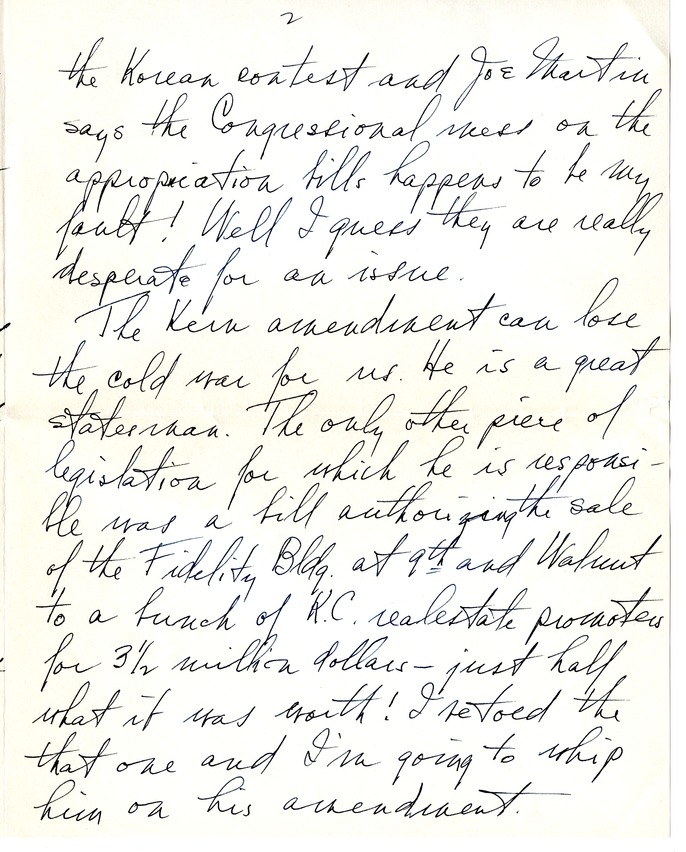 2
the Korean contest and Joe Martin
says the Congressional mess on the
appropriation bills happens to be my
fault! Well I guess they are really
desperate for an issue.
The Kem amendment can lose
the cold war for us. He is a great
statesman. The only other piece of
legislation for which he is responsi-
ble was a bill authorizing the sale
of the Fidelity Bldg. at 9th and Walnut
to a bunch of K.C. realestate promoters
for 3 1/2 million dollars - just half
what it was worth! I vetoed the
that one and I'm going to whip
him on his amendment.